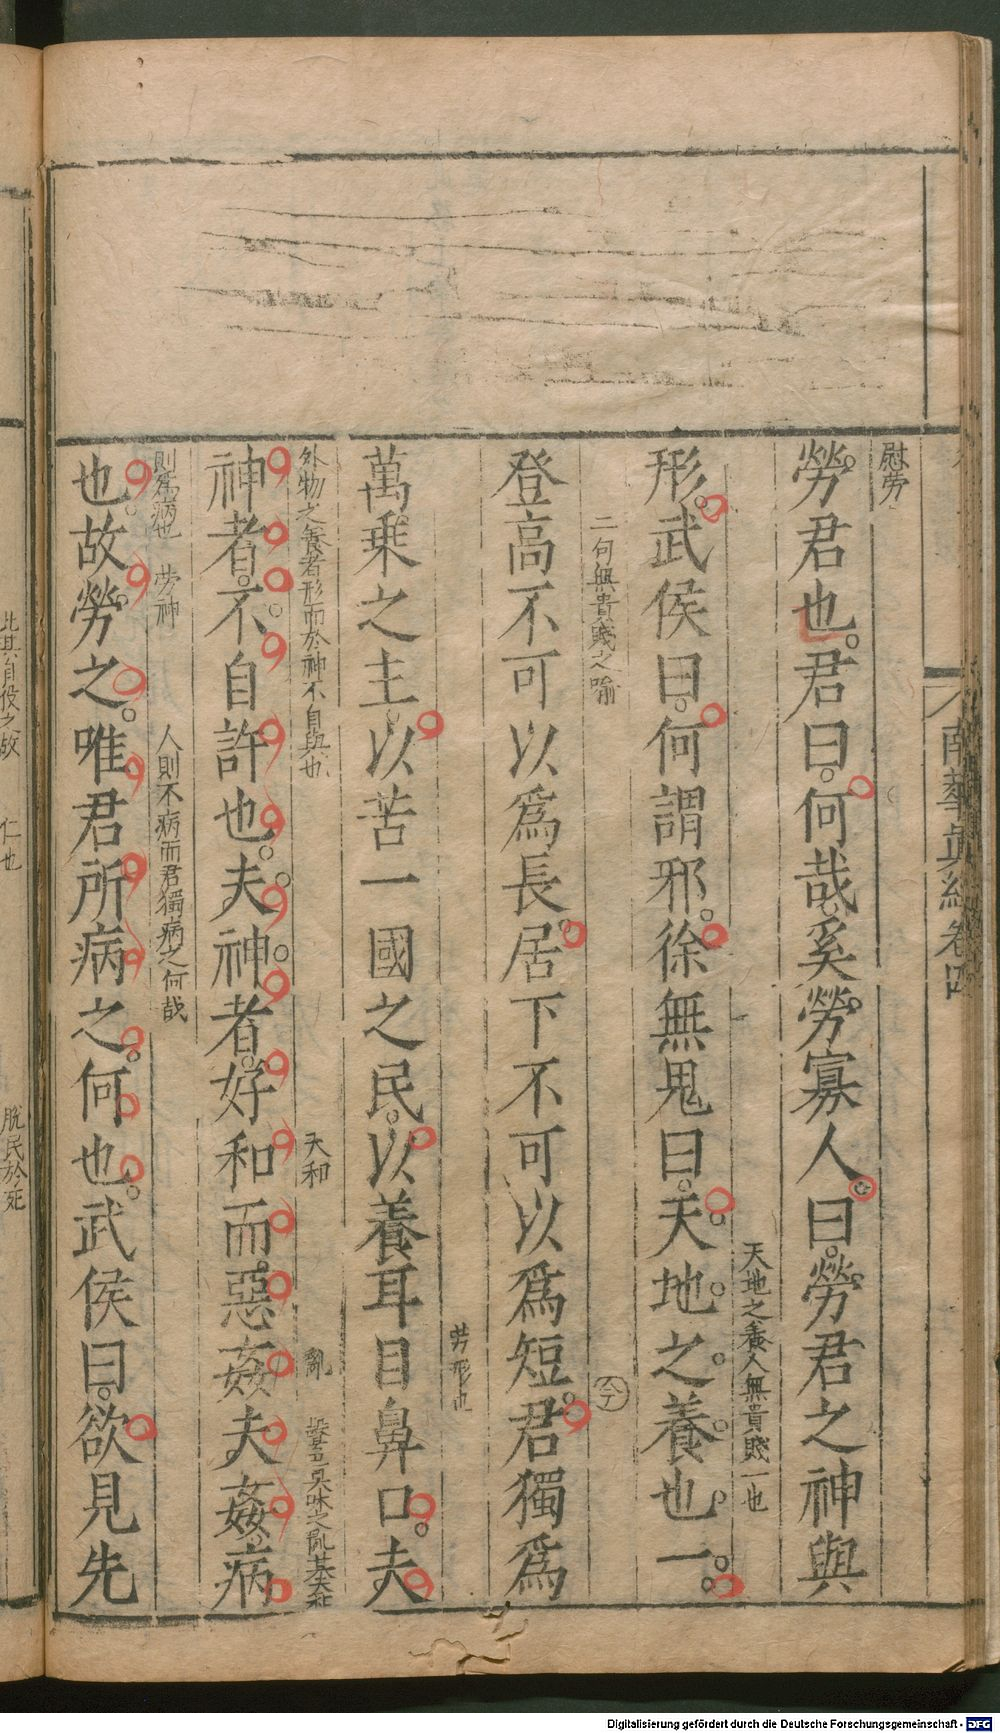 南華真經卷四
慰勞
勞君也。君曰。何哉奚勞寡人。曰。勞君之神與
天地之養人無貴賤一也
形。武侯曰。何謂邪。徐無鬼曰。天地之養也一。
二句無貴賤之喻 今
登高不可以爲長。居下不可以爲短。君獨爲
劳形也
萬乗之主。以苦一國之民。以養耳目鼻口。夫
外物之養者形而於神不自與也 天和 亂
神者。不自許也。夫神者。好和而惡姦。夫姦。病
則爲病也 劳神 人則不病而君獨病之何哉
也。故勞之。唯君所病之。何也。武侯曰。欲見先
此其自役之故 仁也 脫民於死
Digitalisierung gefördert durch die Deutsche Forschungsgemeinschaft - DFG